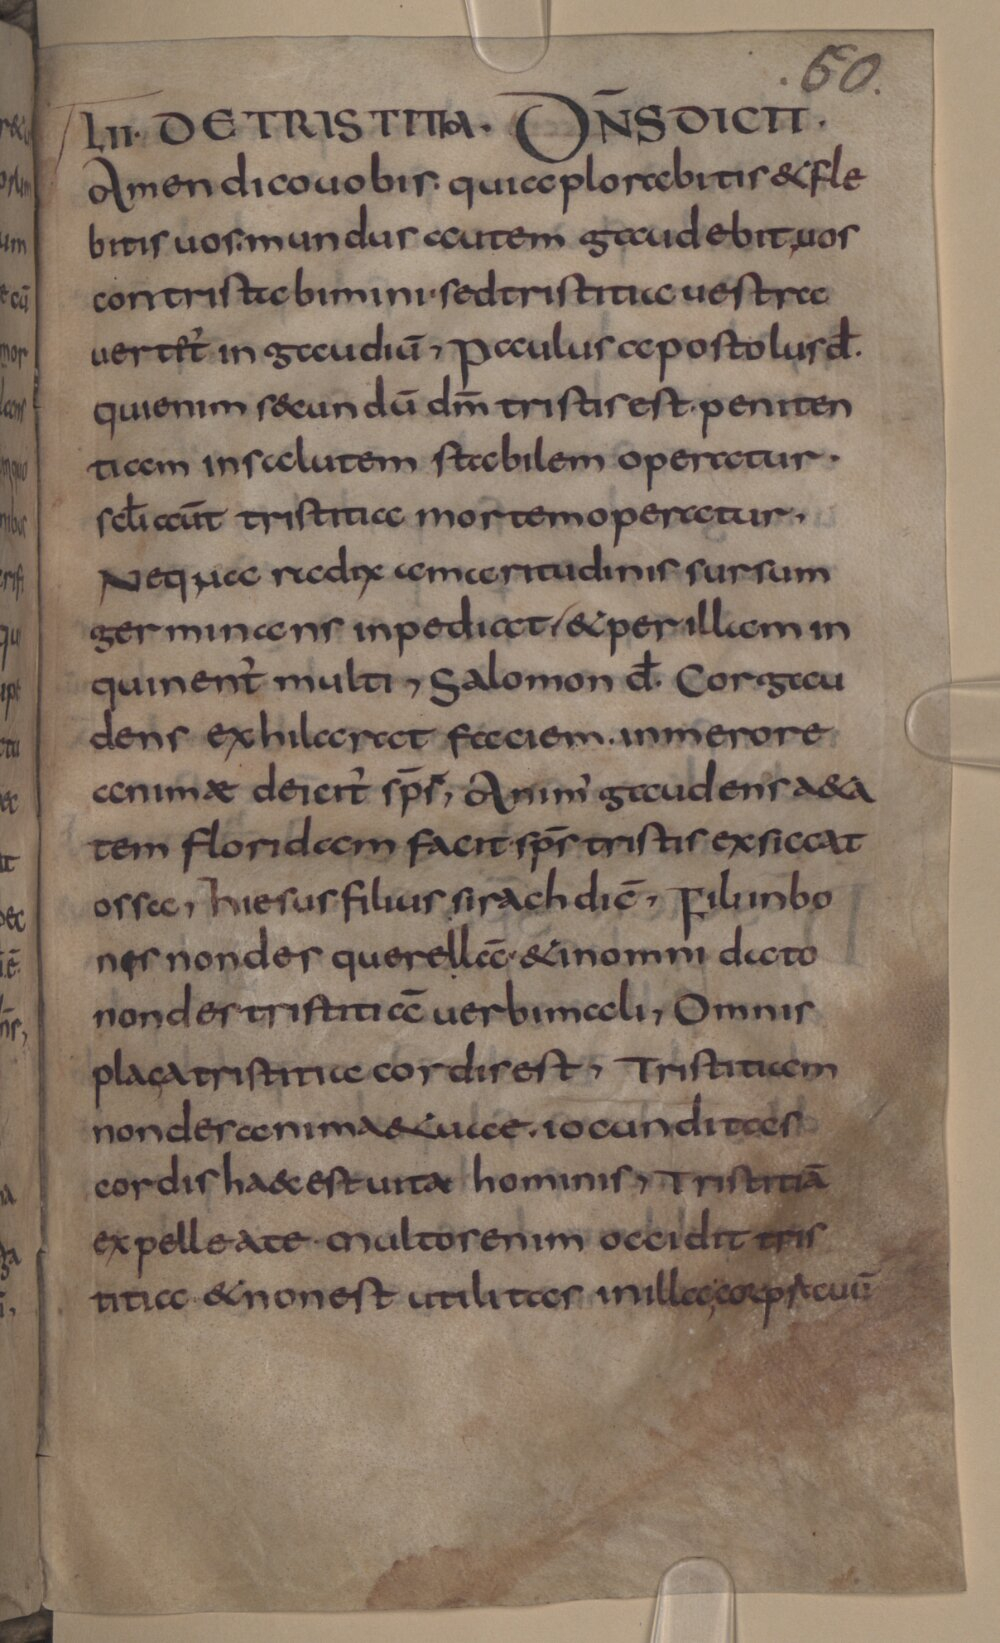 .60.
LII. DE TRISTITIA. DN̄S DICIT.
Amen dico uobis. quia plorabitis & fle
bitis uos. mundus autem gaudebit, uos
contristabimini. sed tristitia uestra
uertet᷑ in gaudiū, Paulus apostolus đ.
qui enim secundū dm̄ tristis est. peniten
tiam in salutem stabilem operatur.
scłi aūt tristitia mortem operatur,
Ne qua radix amaritudinis sursum
germinans inpediat, & per illam in
quinent᷑ multi, Salomon đ. Cor gau
dens exhilarat faciem. in merore
animæ deicit᷑ sp̄s, Anim᷒ gaudens a&a
tem floridam facit. sp̄s tristis exsiccat
ossa, hiesus filius sirach dic̄, Fili in bo
nis non des querellā. & in omni dato
non des tristitiā uerbi mali, Omnis
plaga tristitia cordis est, Tristitiam
non des anima& uae. iocunditas
cordis ha&c est uita hominis, Tristitiā
expelle a te. multos enim occidit tris
titia & non est utilitas in illa, corpus cuū